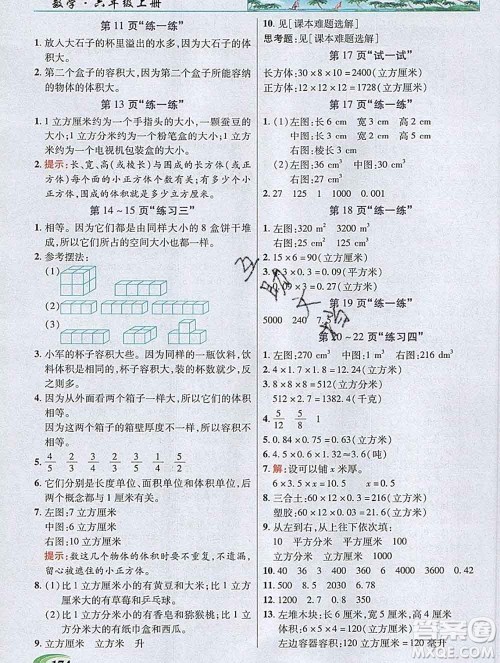 数学·六年级上册
第11页“练一练”
1. 放入大石子的杯里溢出的水多，因为大石子的体积大。
2. 第二个盒子的容积大，因为第二个盒子所能容纳的物体的体积大。
第13页“练一练”
1. 1立方厘米约为一个手指头的大小，一颗蚕豆的大小；1立方分米约为一个粉笔盒的大小；1立方米约为一个电视机包装盒的大小。
2. 提示：长、宽、高(或棱长)与围成的长方体(或正方体)每个面的小正方形数有关，需要多少个小正方体，围成的体积就是多少。
第14~15页“练习三”
1. 相等。因为它们都是由同样的8盒饼干堆成的，所以它们所占的空间大小相等。
2. 参考摆法：
(1)
(2)
3. 小军的杯子容积大些。因为同样的一瓶饮料，饮料总体积是相等的，倒的杯数越少，装的饮料越多，说明杯子容积越大。
4. 因为从里面看两个箱子一样大，所以它们的容积一样大。因为两个箱子的壁厚不一样，所以它们的体积不一样大。
5. 4/5 5/8 1/4
6. 它们分别是长度单位、面积单位、体积单位，它们都与1厘米有关。
7. 左图：7立方厘米
中图：6立方厘米
右图：10立方厘米
提示：数这几个物体的体积时要有规律，不遗漏，留心被遮住的小正方体。
8. (1)比1立方厘米小的有黄豆和大豆，比1立方厘米大的有草莓和乒乓球。
(2)比1立方分米小的有香波和猕猴桃，比1立方分米大的有纸巾盒和西瓜。
9. 立方厘米 立方米 升
174
10. 见[课本难题巧解]
思考题：见[课本难题巧解]
第17页“试一试”
长方体：30×8×10=2400(立方厘米)
正方体：12×12×12=1728(立方厘米)
第17页“练一练”
1. (1)左图：长6 cm 宽3 cm 高2 cm
中图：长4 cm 宽1 cm 高5 cm
右图：棱长3 cm
(2)左图：36 cm³ 中图：20 cm³
右图：27 cm³
2. 27 125 1000 0.001
第18页“练一练”
1. 左图：320 m³ 右图：125 dm³
2. 15×6=90(立方厘米)
3. 0.3×0.3=(平方米)
0.3×3=0.27(立方米)
第19页“练一练”
5000 240
20~22页“练习四”
1. 左图：270 cm³ 右图：1331 dm³
2. 1.5×1.5×1.5=3.375(立方米)
3. 8×8×8=512(立方分米)
512×2.5=1280(千克)
4. 5/12 5/8 1/8
5. 0.84×0.75=0.63(立方米)
6. 2×0.4×2.7=2.16(吨)
7. 解：设可以铺x米厚。
6×2.5×x=6 x=0.4
8. 三合土：60×40×0.15=360(立方米)
塑胶：60×40×0.03=72(立方米)
9. 从左到右，从上到下依次填：
平方厘米 立方厘米 立方米 平方米
升 毫升
10. 36 42000 500 3.6
11. 9 4500 9.08 0.75
12. 40 0.36 2500 7.2
13. 左堆木块：6×5×4=120(立方厘米)
右堆木块：6×6×6=216(立方厘米)
左边容器容积：120立方厘米=120毫升